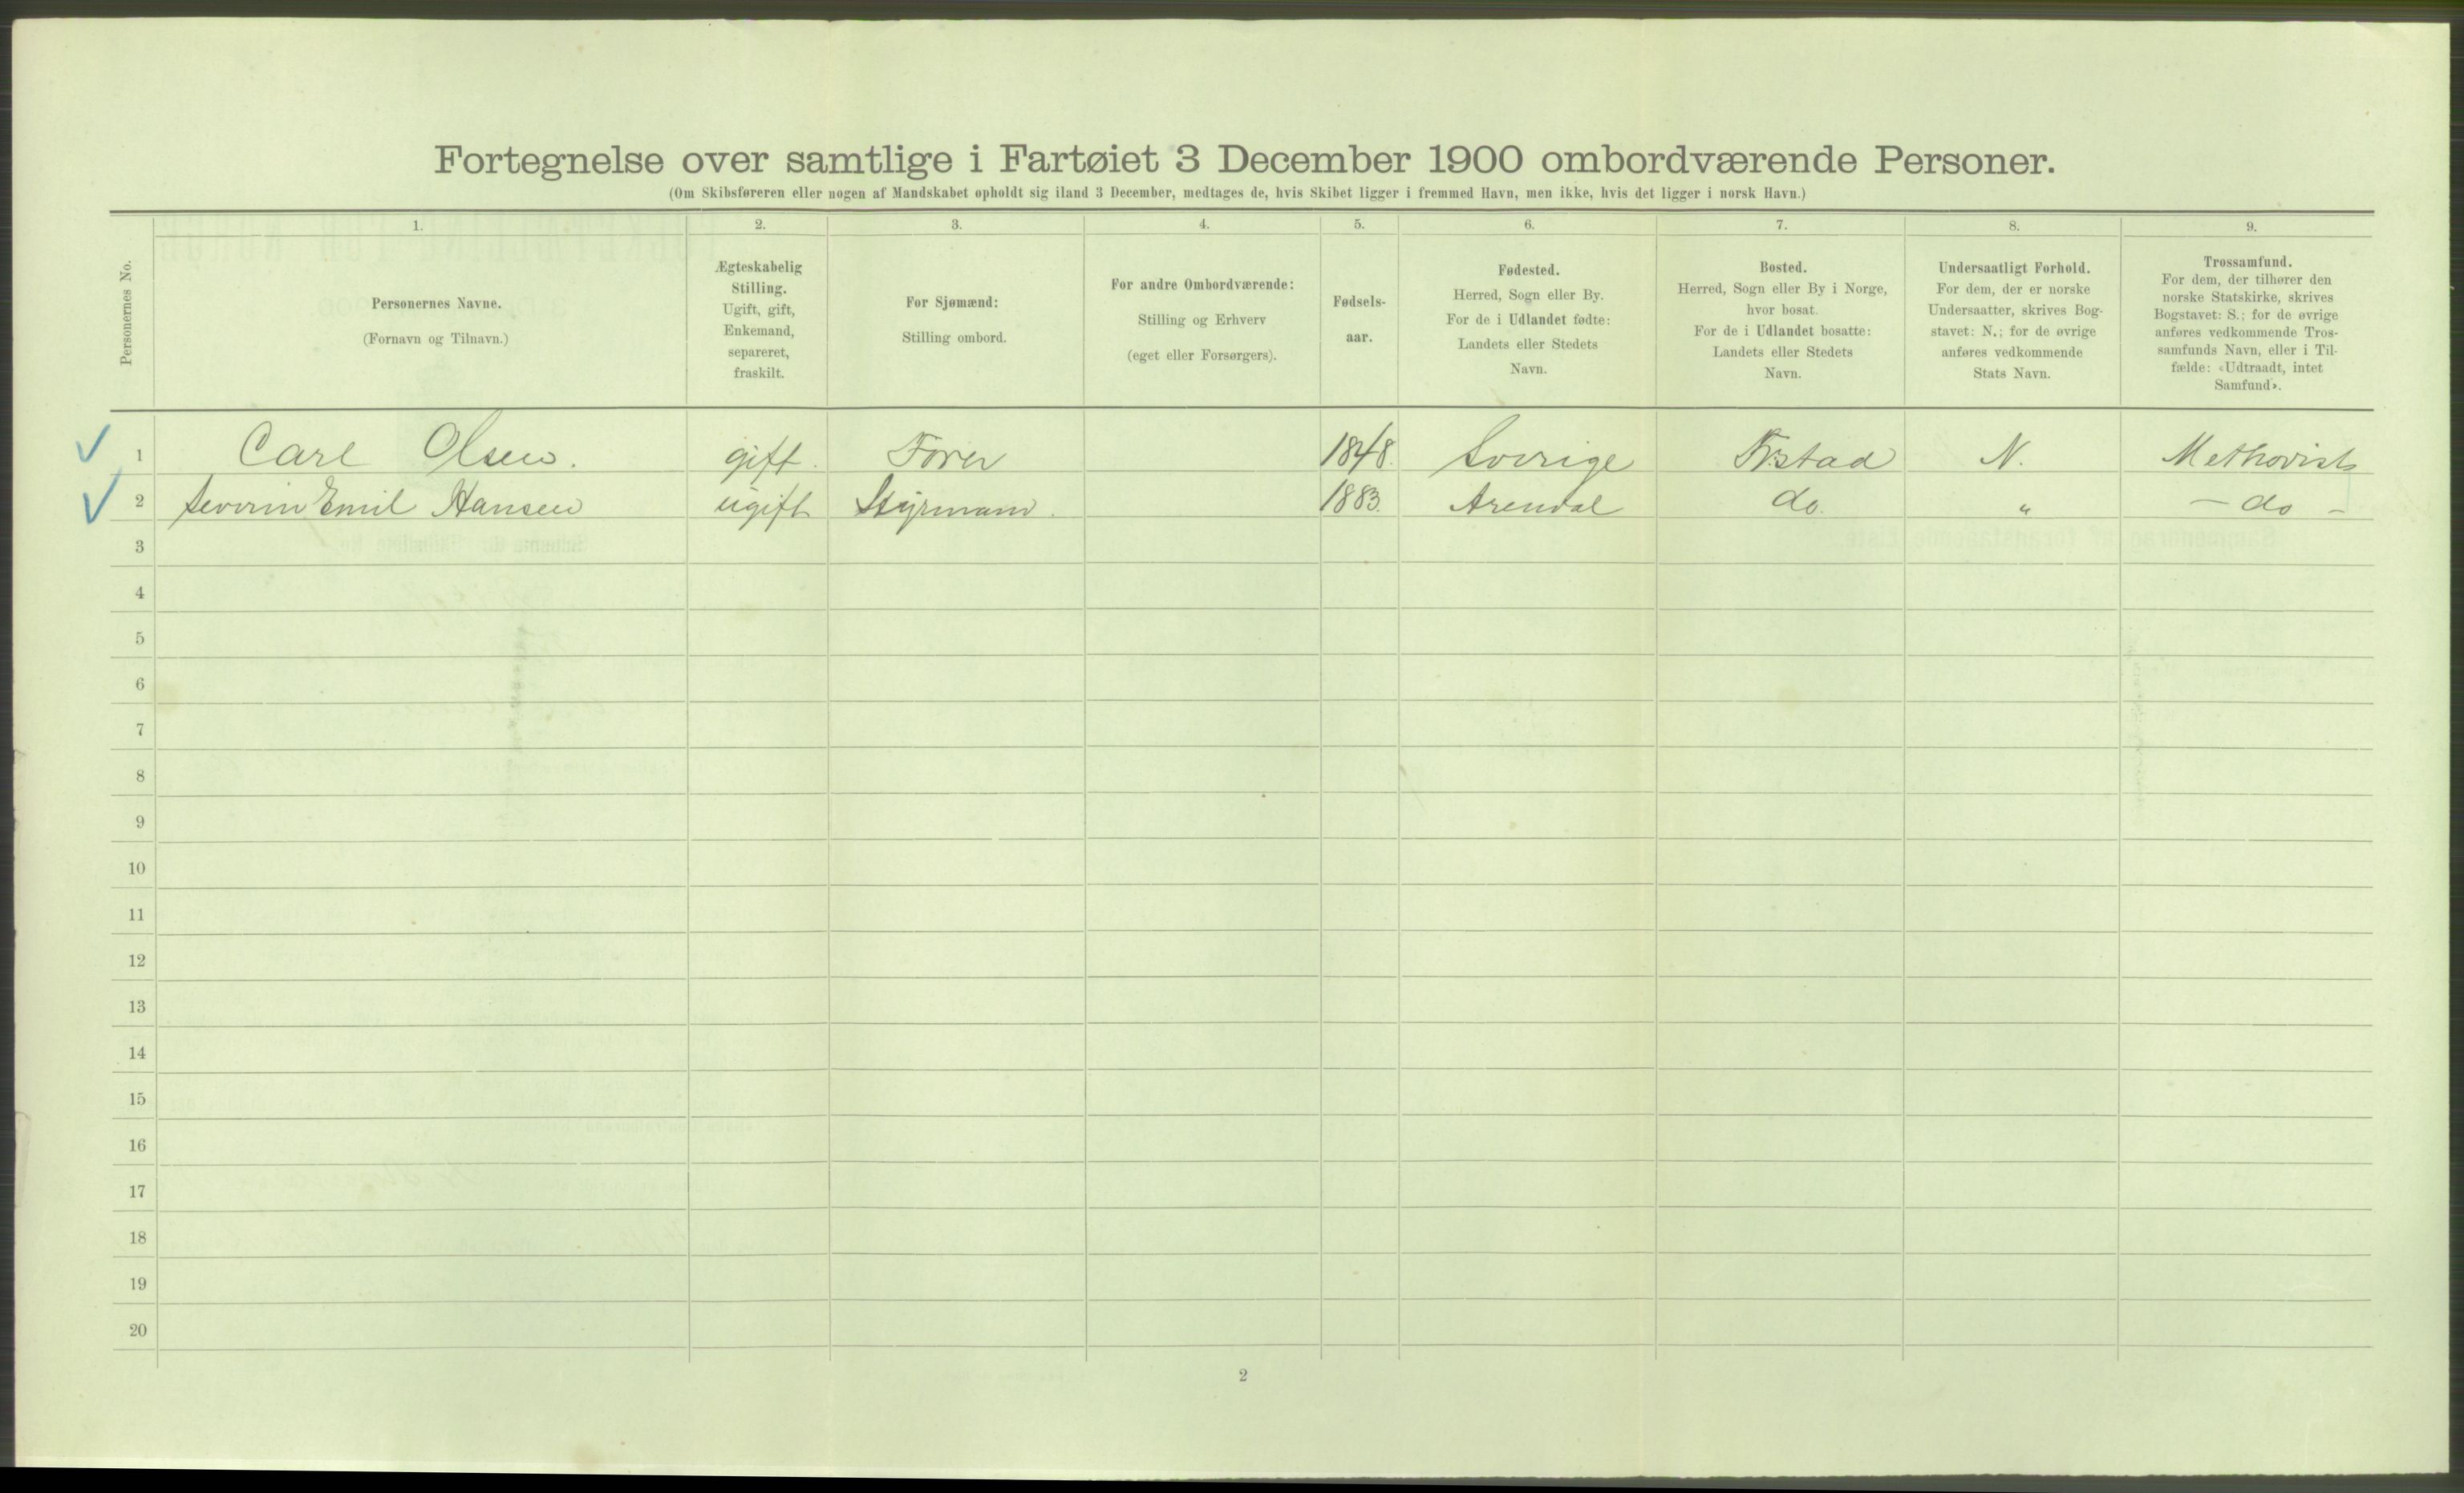 Fortegnelse over samtlige i Fartøiet 3 December 1900 ombordværende Personer.
(Om Skibsføreren eller nogen af Mandskabet opholdt sig iland 3 December, medtages de, hvis Skibet ligger i fremmed Havn, men ikke, hvis det ligger i norsk Havn.)
Personernes No.
1.
Personernes Navne.
(Fornavn og Tilnavn.)
2.
Ægteskabelig
Stilling.
Ugift, gift,
Enkemand,
separeret,
fraskilt.
3.
For Sjømænd:
Stilling ombord.
4.
For andre Ombordværende:
Stilling og Erhverv
(eget eller Forsørgers).
5.
Fødsels-
aar.
6.
Fødested.
Herred, Sogn eller By.
For de i Udlandet fødte:
Landets eller Stedets
Navn.
7.
Bosted.
Herred, Sogn eller By i Norge,
hvor bosat.
For de i Udlandet bosatte:
Landets eller Stedets
Navn.
8.
Undersaatligt Forhold.
For dem, der er norske
Undersaatter, skrives Bog-
stavet: N.; for de øvrige
anføres vedkommende
Stats Navn.
9.
Trossamfund.
For dem, der tilhører den
norske Statskirke, skrives
Bogstavet: S.; for de øvrige
anføres vedkommende Tros-
samfunds Navn, eller i Til-
fælde: «Udtraadt, intet
Samfund».
1 Carl Olsen. gift. Förer 1848. Sverige Fr.stad N. Methodist
2 Severin Emil Hansen ugift Styrmann. 1883. Arendal do. " - do -
3
4
5
6
7
8
9
10
11
12
13
14
15
16
17
18
19
20
2